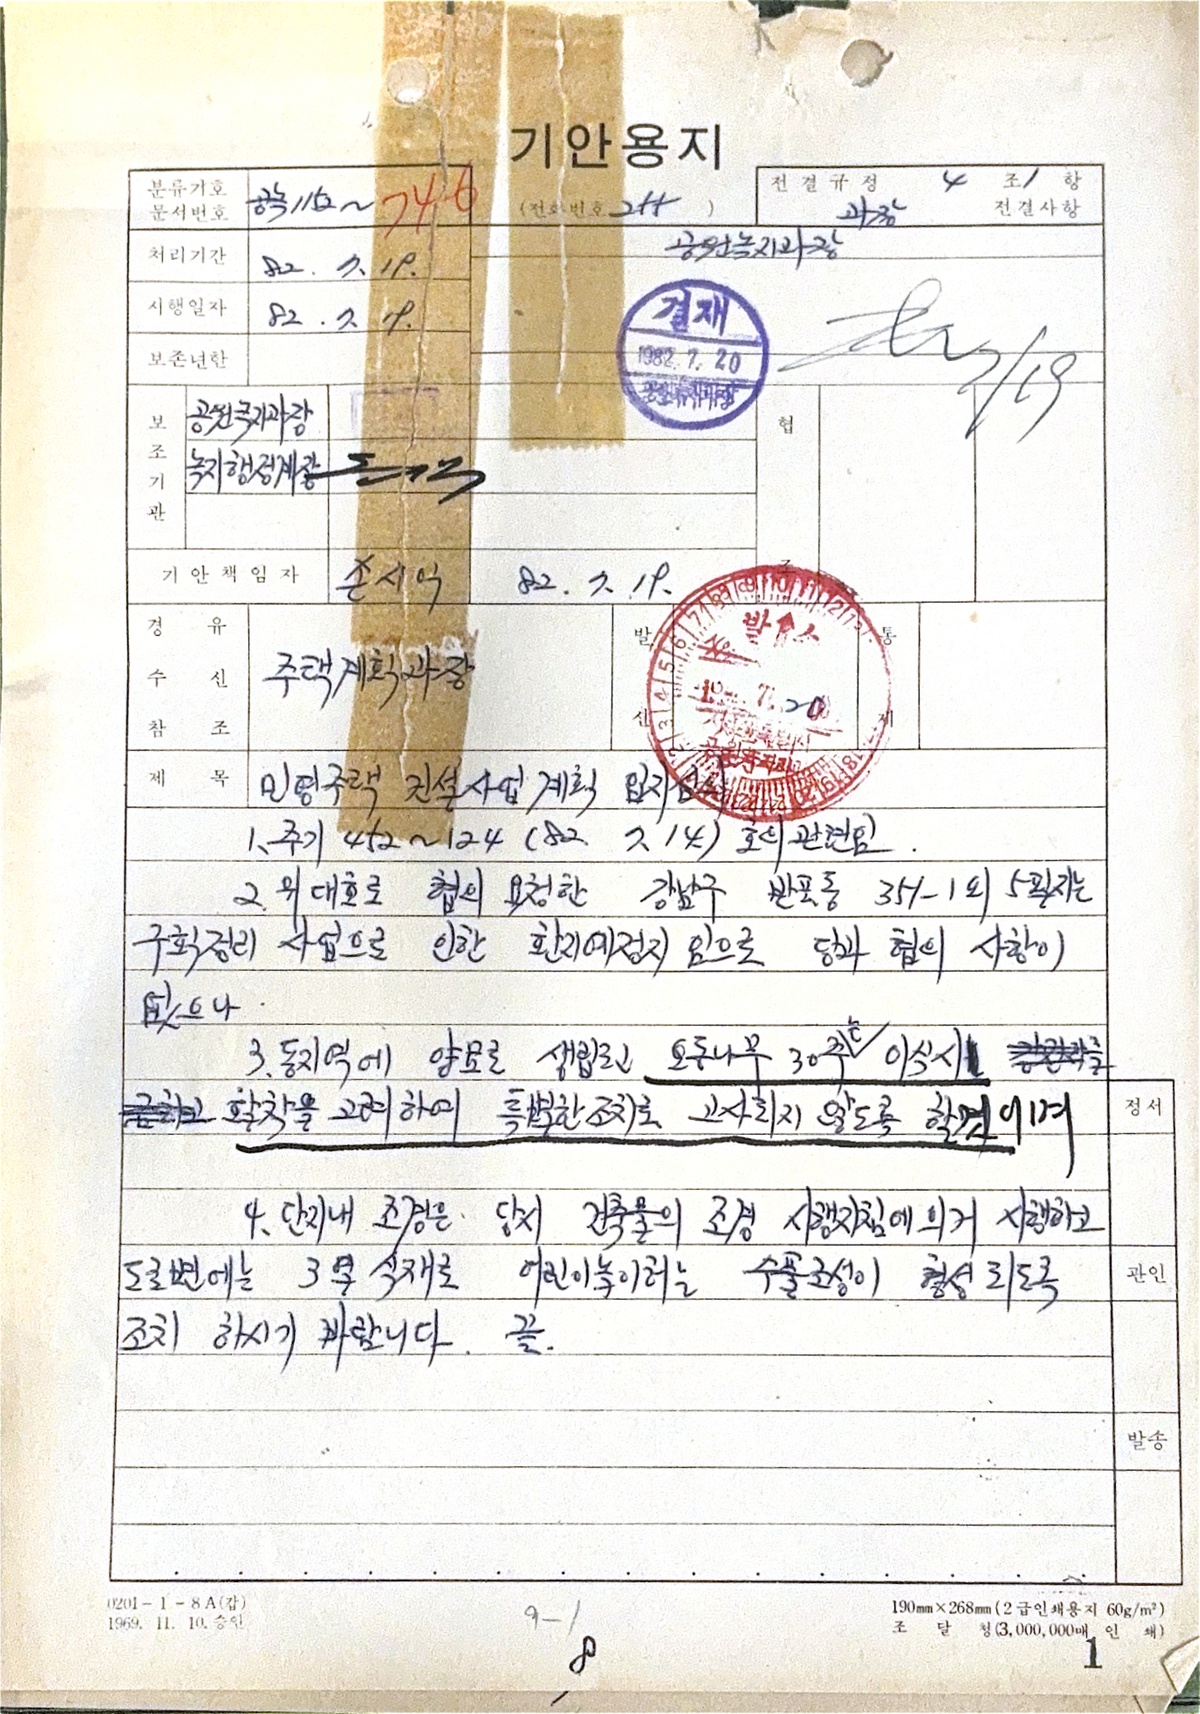 기안용지
분류기호
문서번호
공녹 1152~746
(전화번호 244 )
전결규정 4 조 1 항
과장 전결사항
처리기간 82. 7. 19.
공원녹지과장
시행일자 82. 7. 19.
결재
1982. 7. 20
7/19
보존년한
보조기관
공원녹지과장
녹지행정계장
협조
기안책임자 손시억 82. 7. 19.
경유
수신 주택계획과장
참조
발신
발송
7. 20
통제
제목 민영주택 건설사업계획 입지심사
1. 주기 452~124 (82. 7. 14) 호의 관련임.
2. 위 대호로 협의 요청한 강남구 반포동 351-1외 5필지는
구획정리 사업으로 인한 환지예정지 임으로 당과 협의 사항이
없으나.
3. 동지역에 양묘로 생립된 오동나무 30주는 이식시
활착을 고려하여 특별한 조치로 고사되지 않도록 할것이며
정서
4. 단지내 조경은 당시 건축물의 조경 시행지침에 의거 시행하고
도로변에는 3열 식재로 어린이놀이터는 수풀조성이 형성되도록
관인
조치 하시기 바랍니다. 끝.
발송
0201-1-8A(갑)
1969. 11. 10. 승인
9-1
8
190mm×268mm(2급인쇄용지 60g/m²)
조 달 청(3,000,000매 인 쇄)
1